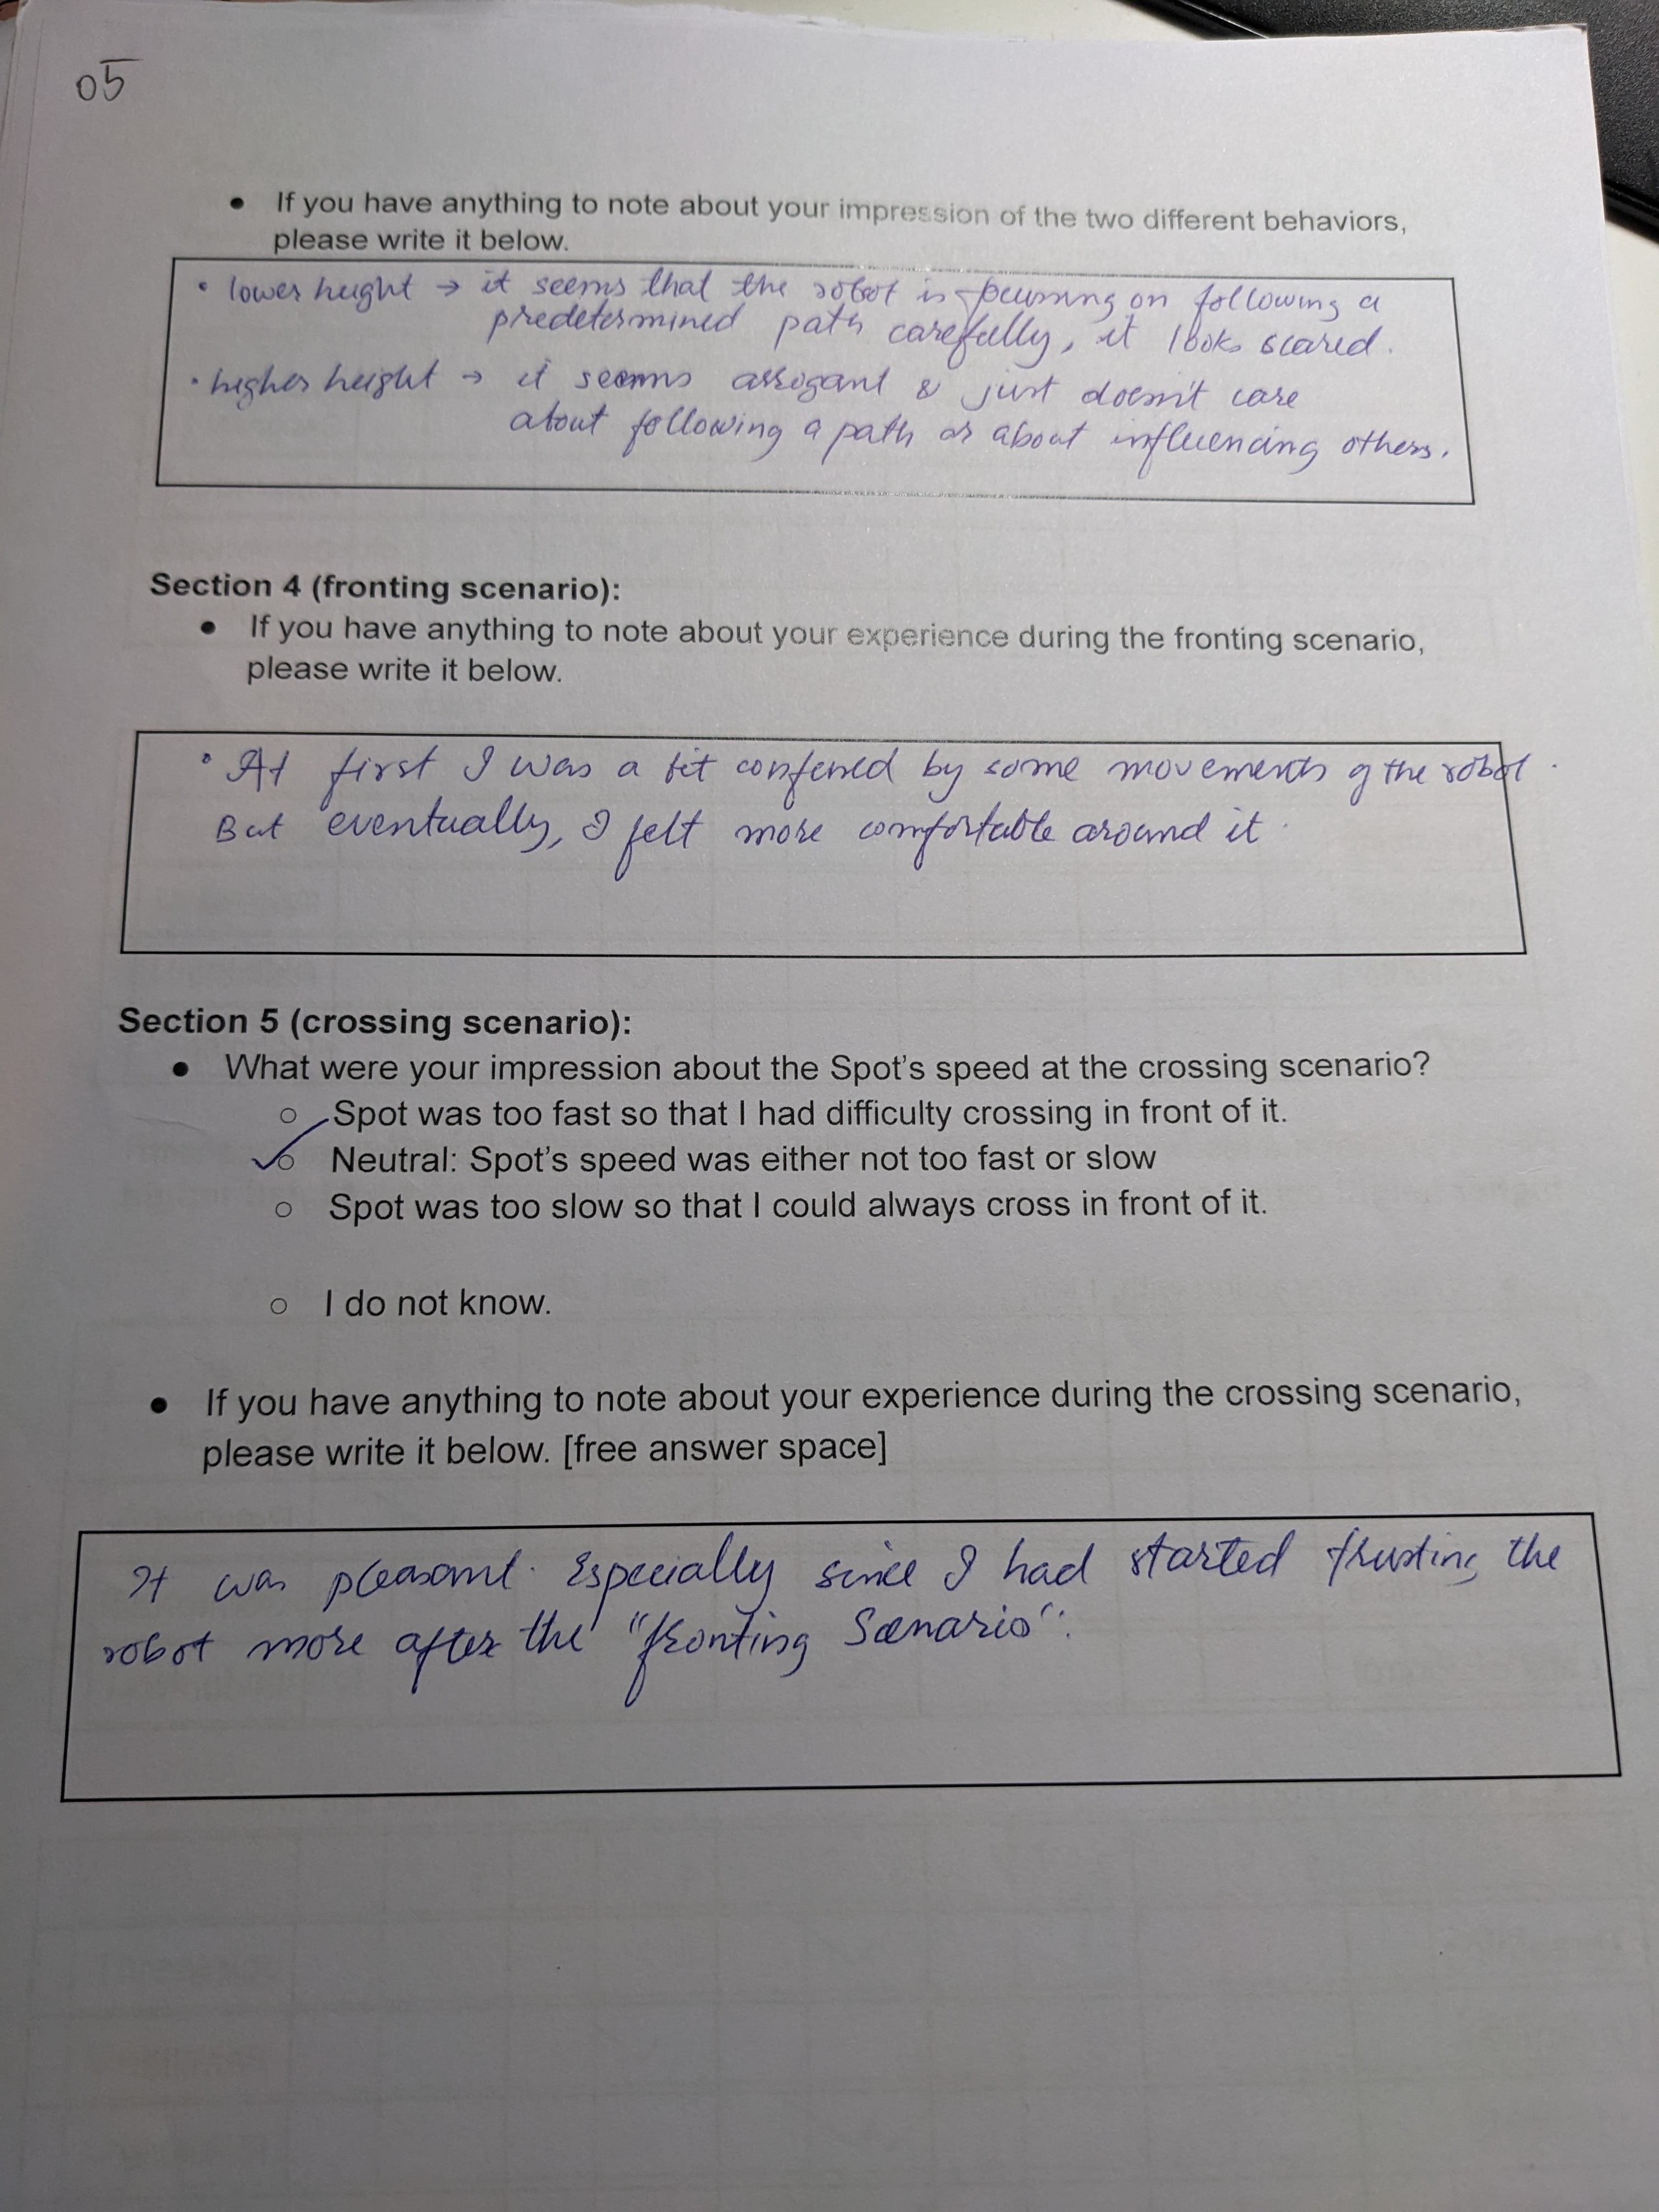 05
• If you have anything to note about your impression of the two different behaviors,
please write it below.
• lower height → it seems that the robot is focussing on following a
predetermined path carefully, it looks scared.
• higher height → it seems arrogant & just doesn't care
about following a path or about influencing others.
Section 4 (fronting scenario):
• If you have anything to note about your experience during the fronting scenario,
please write it below.
• At first I was a bit confused by some movements of the robot.
But eventually, I felt more comfortable around it.
Section 5 (crossing scenario):
• What were your impression about the Spot's speed at the crossing scenario?
○ Spot was too fast so that I had difficulty crossing in front of it.
✓○ Neutral: Spot's speed was either not too fast or slow
○ Spot was too slow so that I could always cross in front of it.
○ I do not know.
• If you have anything to note about your experience during the crossing scenario,
please write it below. [free answer space]
It was pleasant. Especially since I had started trusting the
robot more after the "fronting Scenario".